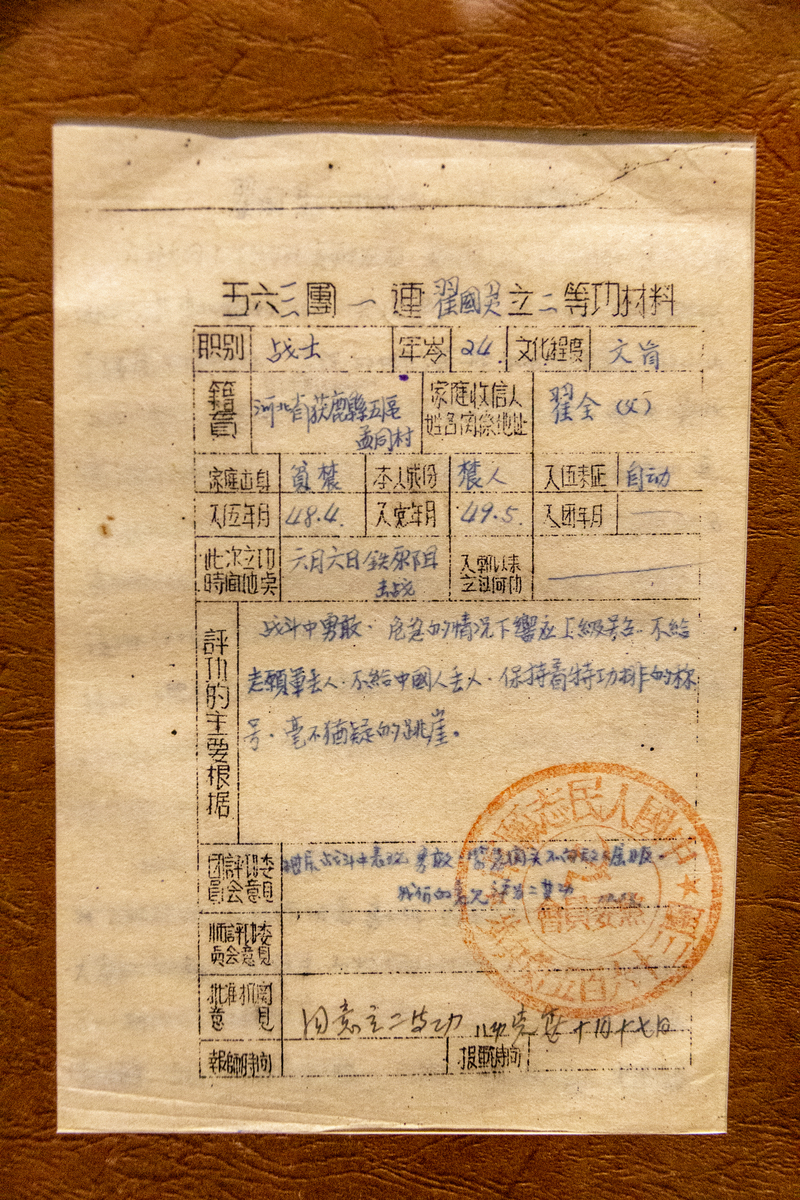 五六三團 一 連 翟國灵 立 二 等功材料
职别 战士 年岑 24 文化程度 文盲
籍貫 河北省获鹿縣五區孟同村 家庭收信人姓名関係地址 翟全（父）
家庭出身 貧農 本人成份 農人 入伍来历 自动
入伍年月 48.4. 入党年月 49.5. 入团年月 —
此次立功時間地奌 六月六日鉄原阻击战 入朝以来立过何功
評功的主要根据
战斗中勇敢．危急的情况下響应上級号召．不給
志願軍丢人．不給中國人丢人．保持着特功排的称
号．毫不猶疑的跳崖。
团評功委員会意見 战斗中表现勇敢
师評功委員会意見
批准机関意見 同意立二等功 十月十七日
報師時间 报軍時间